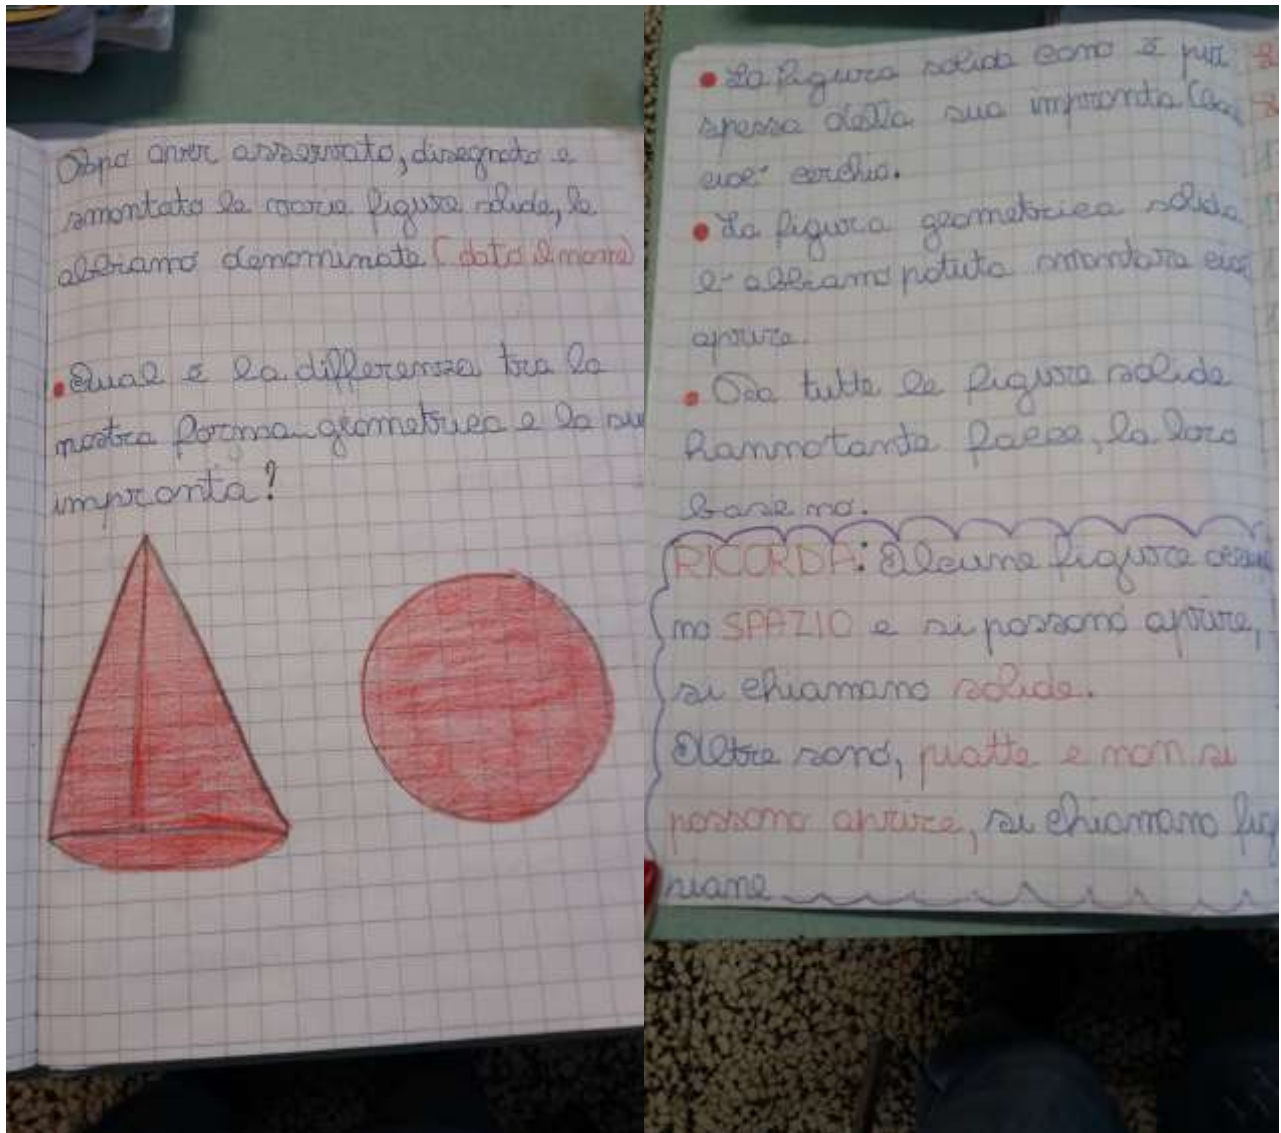 Dopo aver osservato, disegnato e
smontato le varie figure solide, le
abbiamo denominate (dato il nome)
• Qual è la differenza tra la
nostra forma geometrica e la su
impronta?
• La figura solida cono è più
spessa della sua impronta (ba
cioè cerchio.
• La figura geometrica solida
l' abbiamo potuta smontare cioè
aprire.
• tutte le figure solide
hanno tante facce, la loro
base no.
RICORDA: Alcune figure
no SPAZIO e si possono aprire,
si chiamano solide.
Altre sono, piatte e non si
possono aprire, si chiamano fig
piane